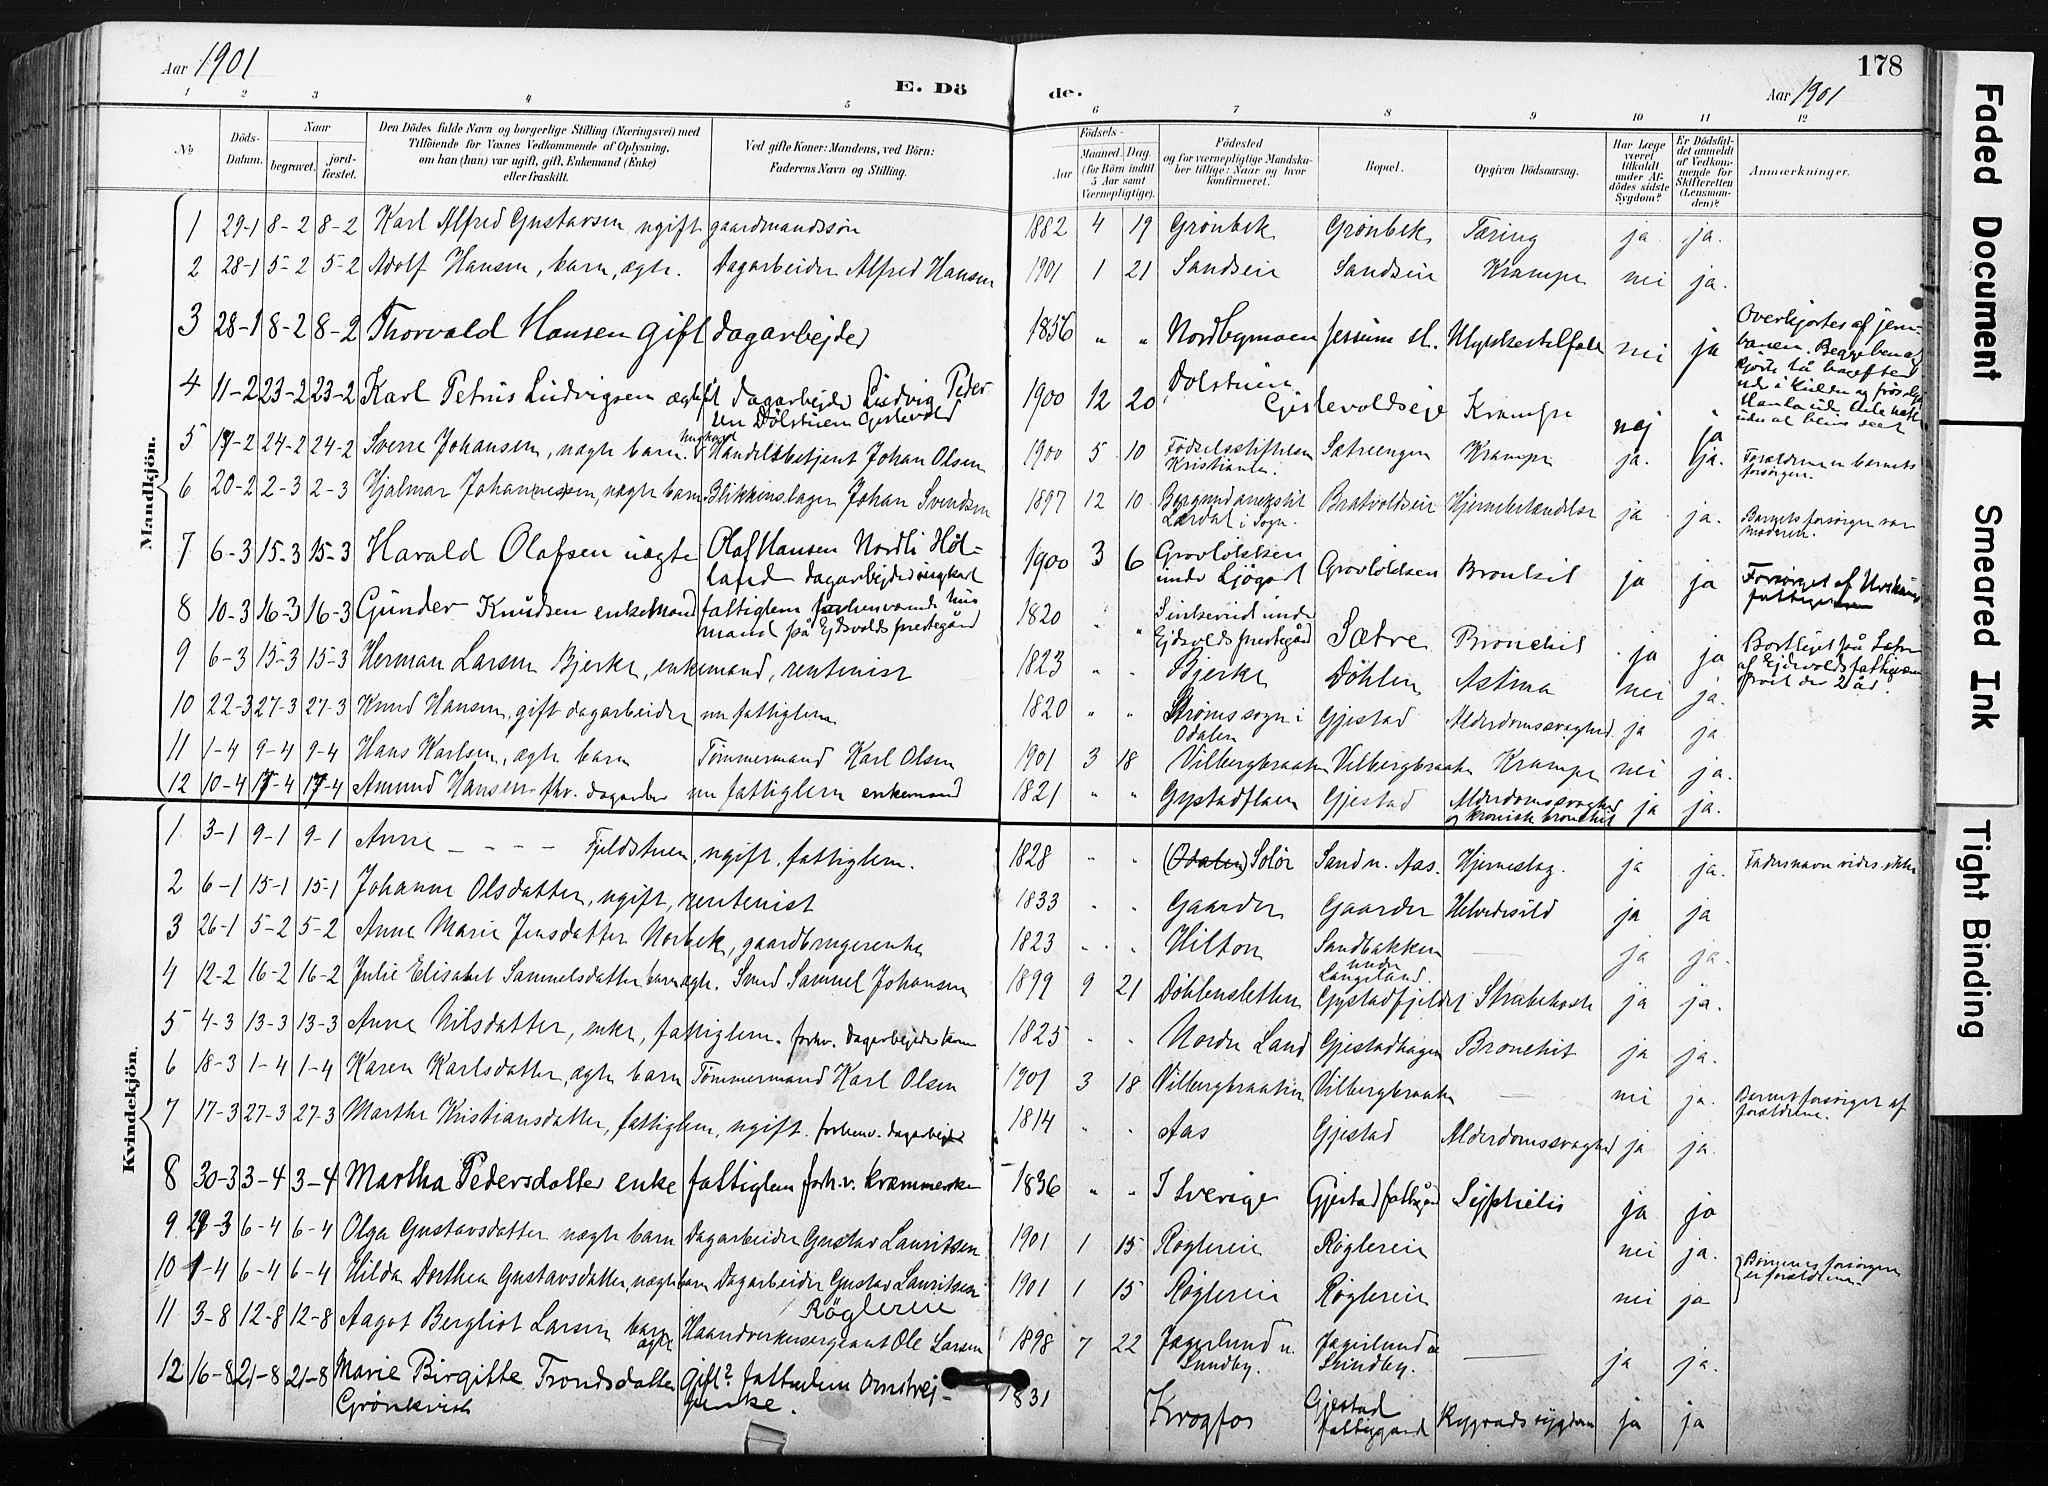 Aar 1901
E. Dö
de.
Aar 1901
178
1 2 3 4 5 6 7 8 9 10 11 12
No
Döds-Datum.
Naar
begravet.
jord-fæstet.
Den Dödes fulde Navn og borgerlige Stilling (Næringsvei) med
Tilföiende for Voxnes Vedkommende af Oplysning,
om han (hun) var ugift, gift, Enkemand (Enke)
eller fraskilt.
Ved gifte Koner: Mandens, ved Börn:
Faderens Navn og Stilling.
Födsels-
Aar
Maaned. Dag.
(for Börn indtil
5 Aar samt
Værnepligtige).
Födested
og for værnepligtige Mandska-
ber tillige: Naar og hvor
konfirmeret.
Bopæl.
Opgiven Dödsaarsag.
Har Læge
været
tilkaldt
under Af-
dödes sidste
Sygdom?
Er Dödsfal-
det anmeldt
af Vedkom-
mende for
Skifteretten
(Lensman-
den)?
Anmærkninger.
Mandkjön.
1 29-1 8-2 8-2 Karl Alfred Gustavsen, ugift gaardmandssön 1882 4 19 Grönbek Grönbek Tæring ja ja.
2 28-1 5-2 5-2 Adolf Hansen, barn, ægte. Dagarbeider Alfred Hansen 1901 1 21 Sandseie Sandseie Krampe nei ja.
3 28-1 8-2 8-2 Thorvald Hansen gift dagarbejder 1856 " " Nordbymoen Jessum st. Ulykkestilfælde nei ja
Overkjørtes af jern-
banen. Begge ben af
4 11-2 23-2 23-2 Karl Petrus Ludvigsen ægte dagarbejder Ludvig Peder-
sen Dölstuen Gistevold 1900 12 20 Dølstuen Gistevoldseje Krampe nej ja
5 17-2 24-2 24-2 Sverre Johansen, uægte barn. Handelsbetjent Johan Olsen 1900 5 10 Födselsstiftelsen
Kristiania Sætreengen Krampe ja. ja. Forældrene barnets
forsörgere.
6 20-2 2-3 2-3 Hjalmar Johannessen, uægte barn Blikkenslager Johan Svendsen 1897 12 10 Borgund anekstil
Lærdal i Sogn. Bratvoldseie Hjernebetændelse ja ja. Barnets forsörger var
moderen.
7 6-3 15-3 15-3 Harald Olafsen uægte Olaf Hansen Nordli Höl-
land dagarbejder ungkarl 1900 3 6 Grovlökken
under Ljögodt Grovlökken Bronkit ja ja Forsörget af Urskaug
8 10-3 16-3 16-3 Gunder Knudsen enkemand fattiglem forhenværende hus
mand på Ejdsvolds prestegård 1820 " " under
Ejdsvolds prestegård Sætre Bronchit ja ja Bortliget på Sætre
af Ejdsvolds fattigvæsen
9 6-3 15-3 15-3 Herman Larsen Bjerke, enkemand, rentenist 1823 " " Bjerke Döhlen Astma nei ja.
10 22-3 27-3 27-3 Knud Hansen, gift dagarbeider nu fattiglem 1820 " " Strömssogn i
Odalen Gjestad Alderdomssvaghed ja ja
11 1-4 9-4 9-4 Hans Karlsen, ægte barn Tömmermand Karl Olsen 1901 3 18 Vilbergbraaten Vilbergbraaten Krampe nei ja.
12 10-4 17-4 17-4 Amund Hansen fhv. dagarber nu fattiglem enkemand 1821 " " Gystadflaen Gjestad Alderdomssvaghed
og kronisk bronchit ja ja.
Kvindekjön.
1 3-1 9-1 9-1 Anne – – – – Fjeldstuen, ugift, fattiglem. 1828 " " (Odalen) Solör Sand n. Aas. Hjerneslag. ja ja. Fadersnavn vides ikke
2 6-1 15-1 15-1 Johanne Olsdatter, ugift, rentenist 1833 " " Gaarder Gaarder Helvedesild ja ja
3 26-1 5-2 5-2 Anne Marie Jensdatter Norbek, gaardbrugerenke 1823 " " Hilton Sandbakken
under
Langeland. — ja ja.
4 12-2 16-2 16-2 Julie Elisabet Samuelsdatter barn ægte. Smed Samuel Johansen 1899 9 21 Döhlensletten Gystadfjeldet Strubehoste ja ja.
5 4-3 13-3 13-3 Anne Nilsdatter, enke, fattiglem. forhv. dagarbejderkone 1825 " " Nordre Land Gjestadhagen Bronchit ja ja.
6 18-3 1-4 1-4 Karen Karlsdatter, ægte barn Tömmermand Karl Olsen 1901 3 18 Vilbergbraaten Vilbergbraaten — nei ja. Barnet forsörges af
forældrene.
7 17-3 27-3 27-3 Marthe Kristiansdatter, fattiglem, ugift. forhenv. dagarbejder 1814 " " Aas Gjestad Alderdomssvaghed ja ja.
8 30-3 3-4 3-4 Martha Pedersdatter enke fattiglem forh.v. kræmmerske 1836 " " I Sverige Gjestad fattiggård Syphilis ja ja
9 29-3 6-4 6-4 Olga Gustavsdatter uægte barn Dagarbeider Gustav Lauritsen 1901 1 15 Röglereie Röglereie nei ja.
10 1-4 6-4 6-4 Hilda Dorthea Gustavsdatter, uægte barn Dagarbeider Gustav Lauritsen
Röglereie 1901 1 15 Röglereie Röglereie nei ja Börnenes forsörgere
er forældrene.
11 3-8 12-8 12-8 Aagot Bergliot Larsen barn
ægte Haandverkersergeant Ole Larsen 1898 7 22 Jægerlund u.
Sundby. Jægerlund u
Sundby. — ja ja.
12 16-8 21-8 21-8 Marie Birgitte Trondsdatter
Grönkvist Gift? fattiglem Omstrej-
ferske. 1831 Krogfos Gjestad
fattiggaard Rygradssygdom ja ja
Faded Document
Smeared Ink
Tight Binding